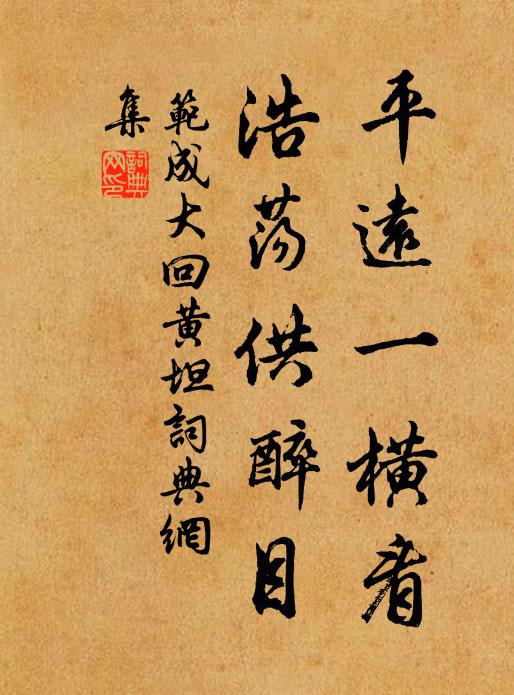 平遠一橫看
浩蕩供醉目
範成大回黃坦詞典網
集
詞典網印